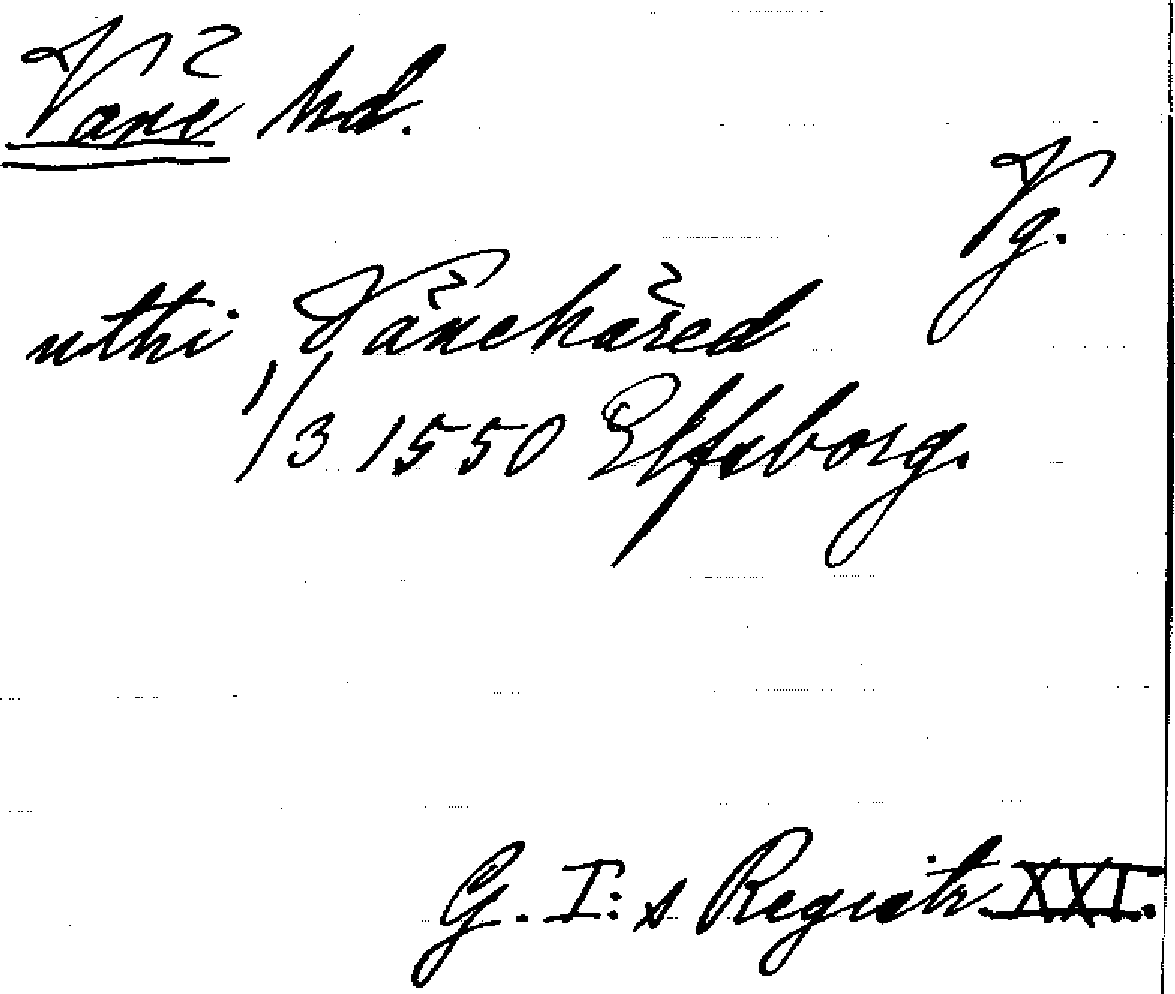 Väne hd.
Vg.
uthi Vänehäred
1/3 1550 Elfsborg.
G. I:s Registr. XXI.